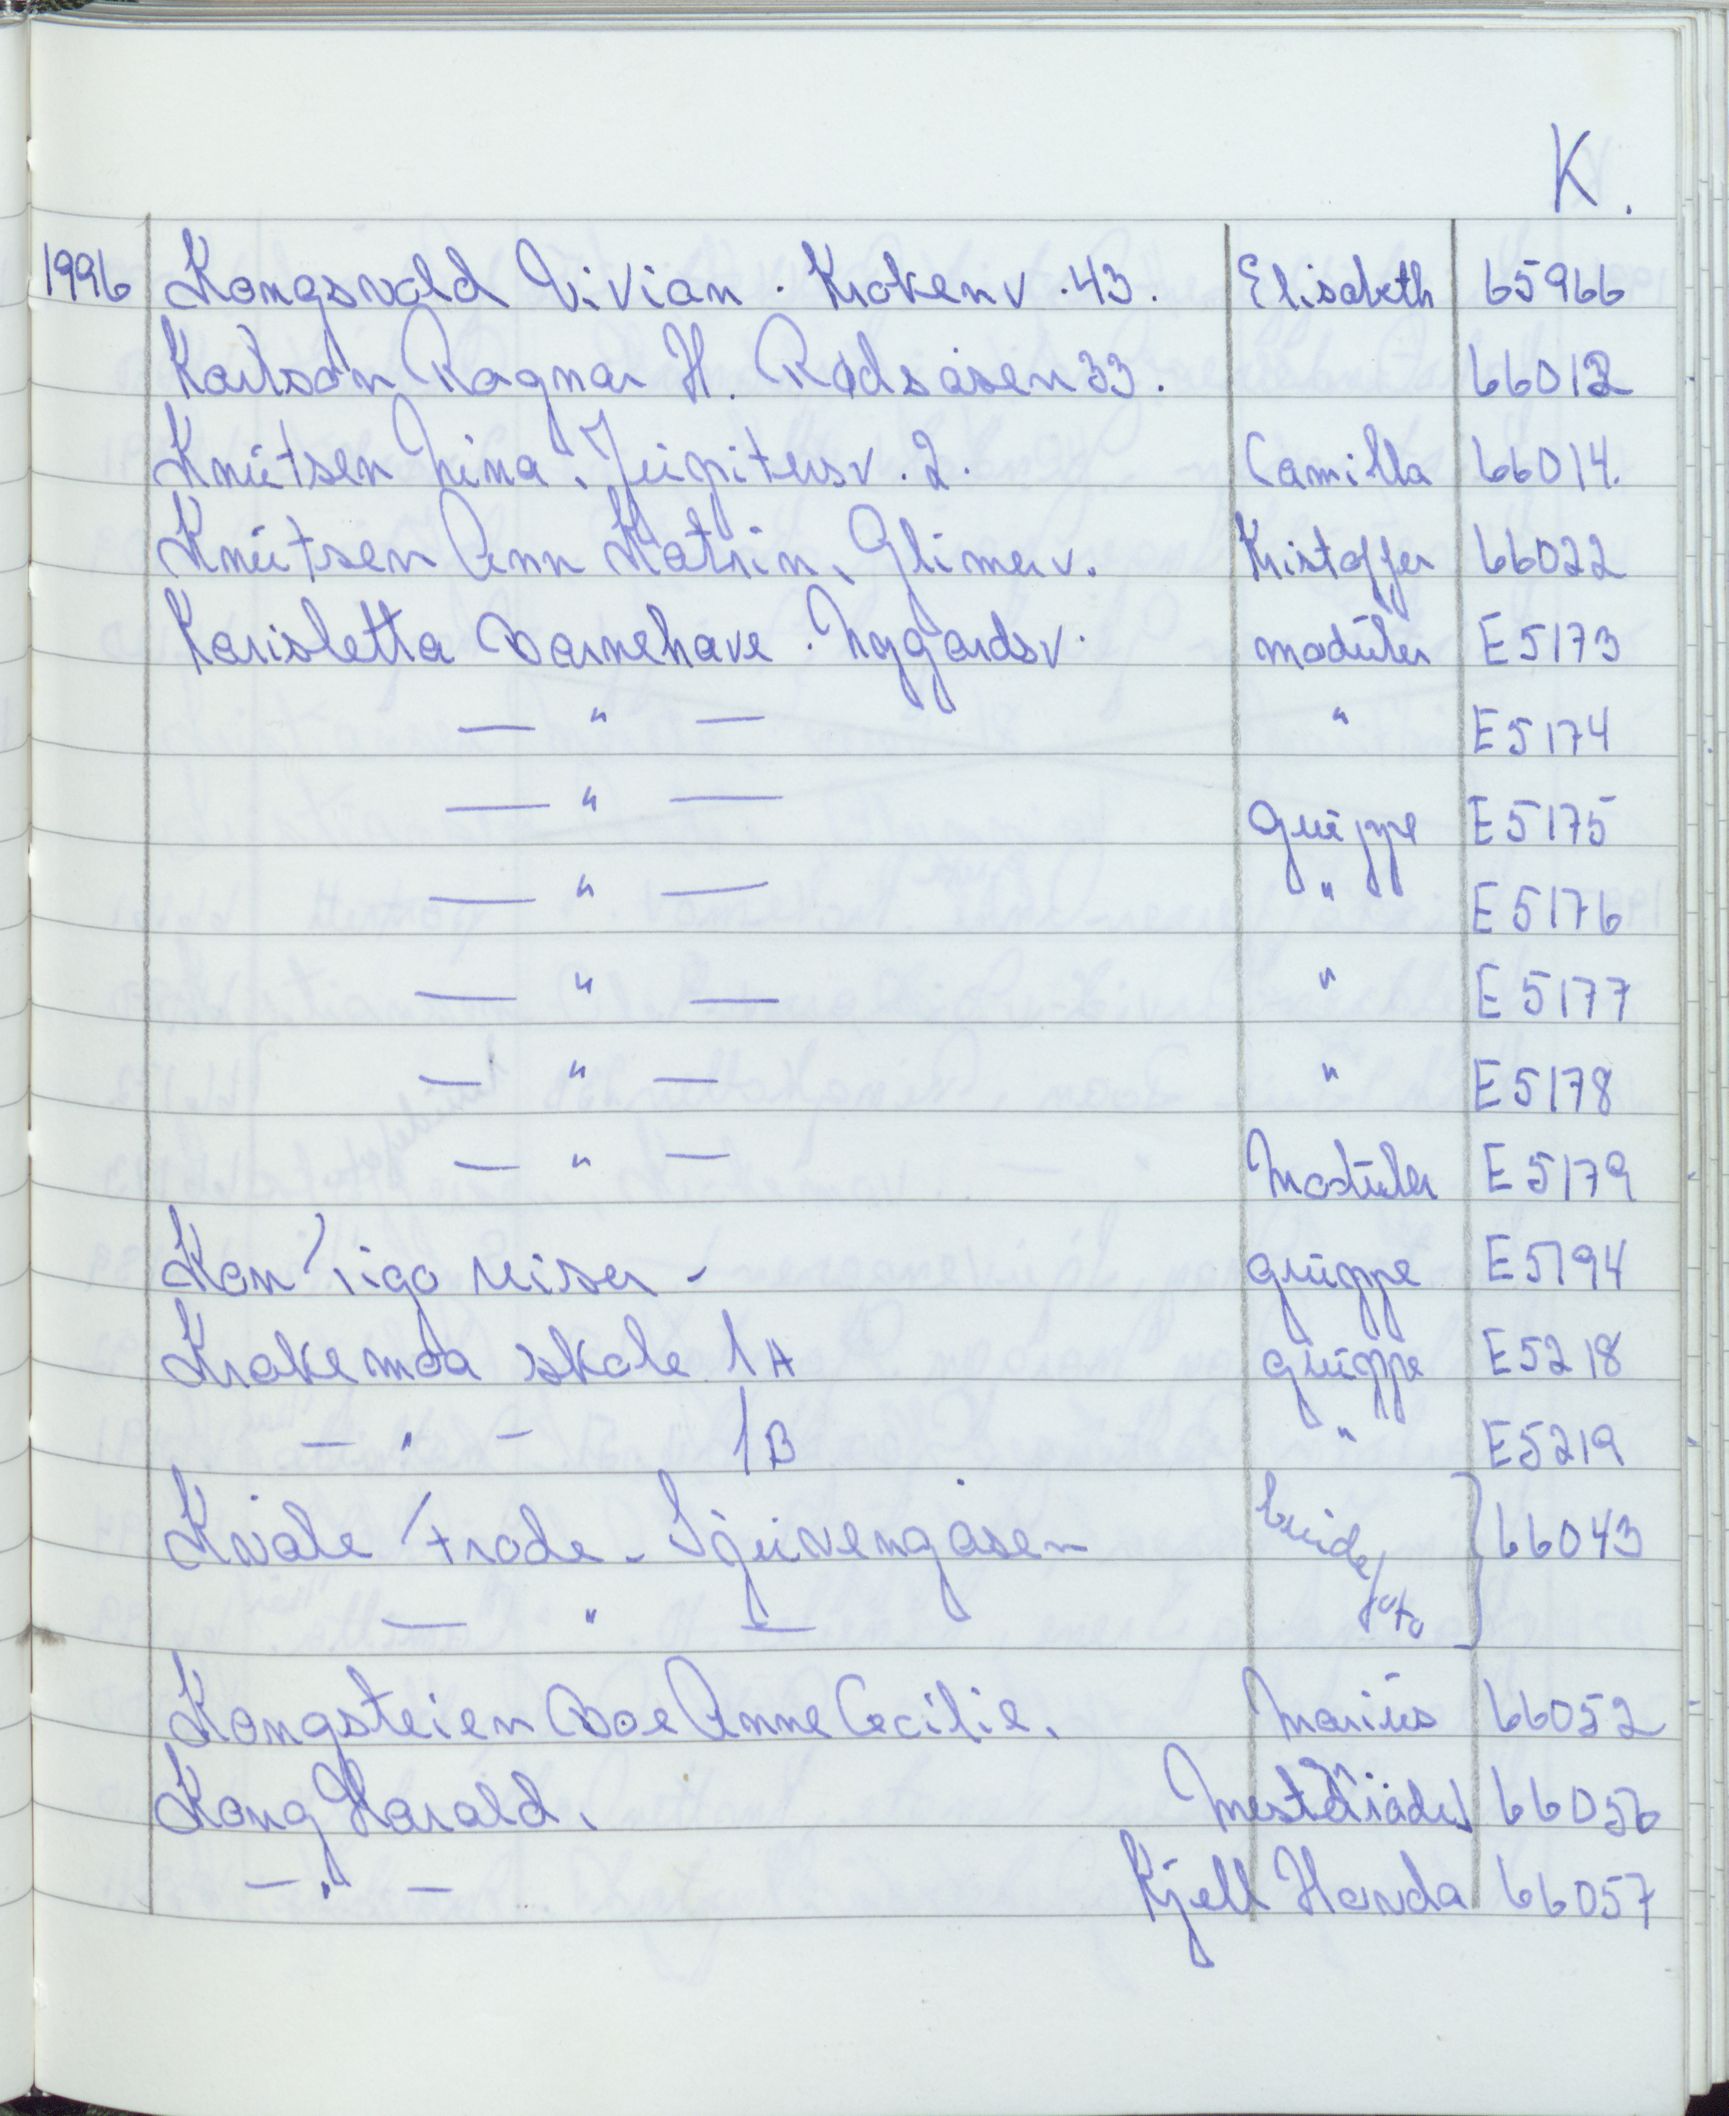 K.
1996 Kongsvold Vivian. Krokenv. 43. Elisabeth 65966
Karlson Ragnar H. Rødsåsen 33. 66012
Knutsen Nina. Jupitersv. 2. Camilla 66014.
Knutsen Ann Katrin. Glimerv. Kristoffer 66022
Karisletta Barnehave. Nygårdsv. modüler E5173
— " — " E5174
— " — gruppe E5175
— " — " E5176
— " — " E5177
— " — " E5178
— " — Modüler E5179
Kon Tigo reiser - gruppe E5194
Krakemoa skole 1A gruppe E5218
— " — 1B " E5219
Kvale Frode - Sjüvengåsen brudefoto } 66043
— " —
Kongsteien Boe Anne Cecilie. Marius 66052
Kong Harald. 66056
— " — Kjell Handa 66057